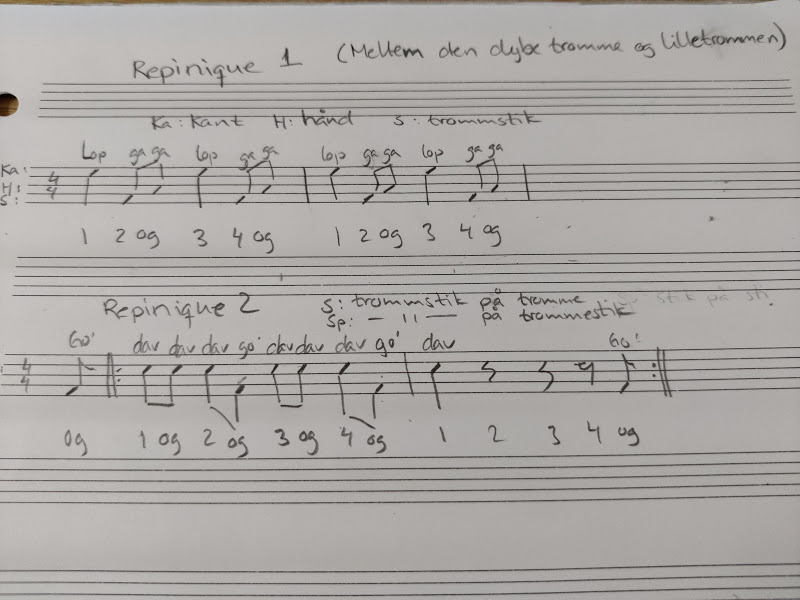 Repinique 1 (Mellem den dybe tromme og lilletrommen)
Ka: Kant H: hånd S: trommstik
Lop ga ga Lop ga ga Lop ga ga Lop ga ga
Ka:
H:
S:
4
4
1 2 og 3 4 og 1 2 og 3 4 og
Repinique 2 S: trommstik på tromme
Sp: — 11 — på trommestik
Go' dav dav dav go' dav dav dav go' dav Go'
4
4
og 1 og 2 og 3 og 4 og 1 2 3 4 og